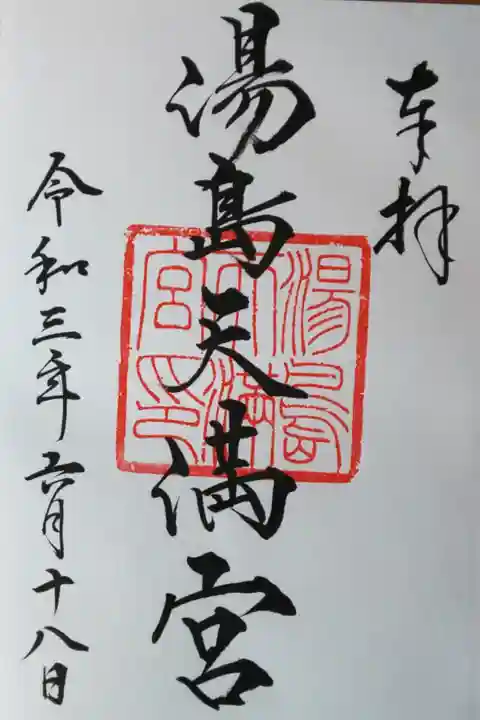 奉拝
湯島天満宮
湯島天満宮印
令和三年六月十八日